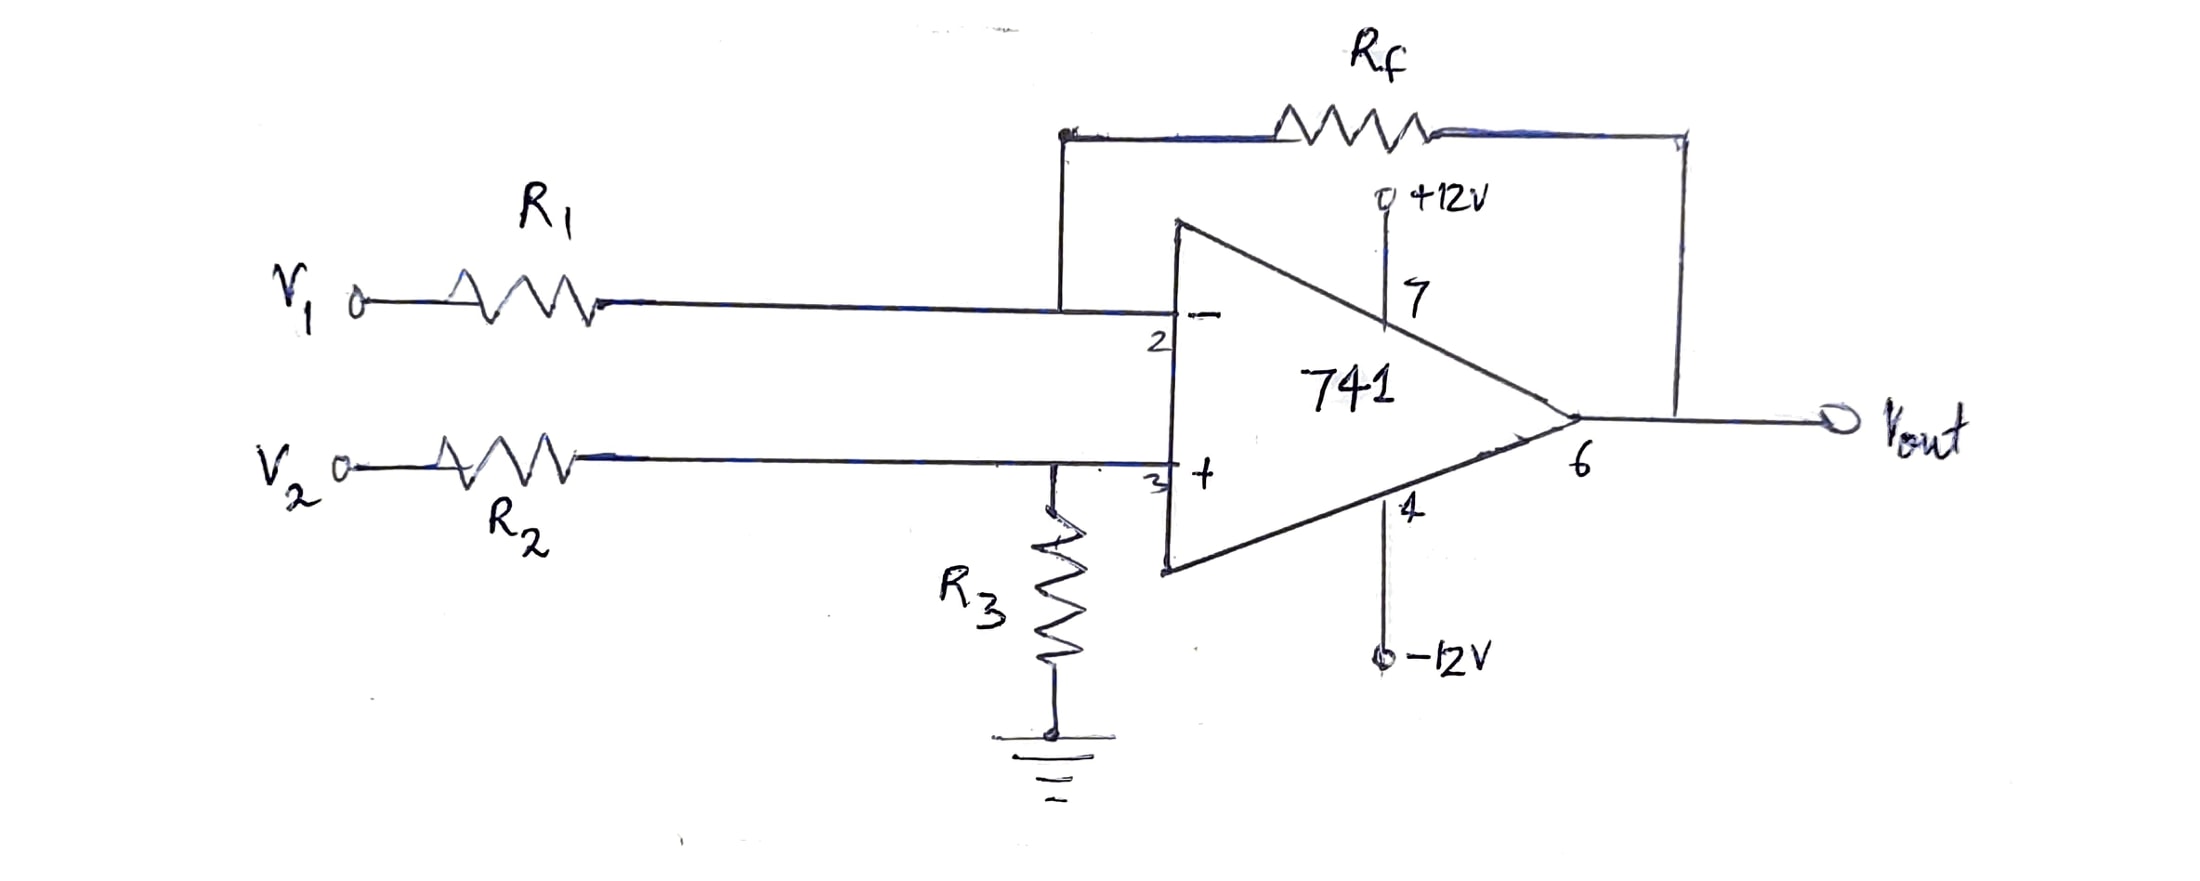 Rf
+12V
R1
7
V1
-
2
741
Vout
V2
3
+
6
R2
4
R3
-12V